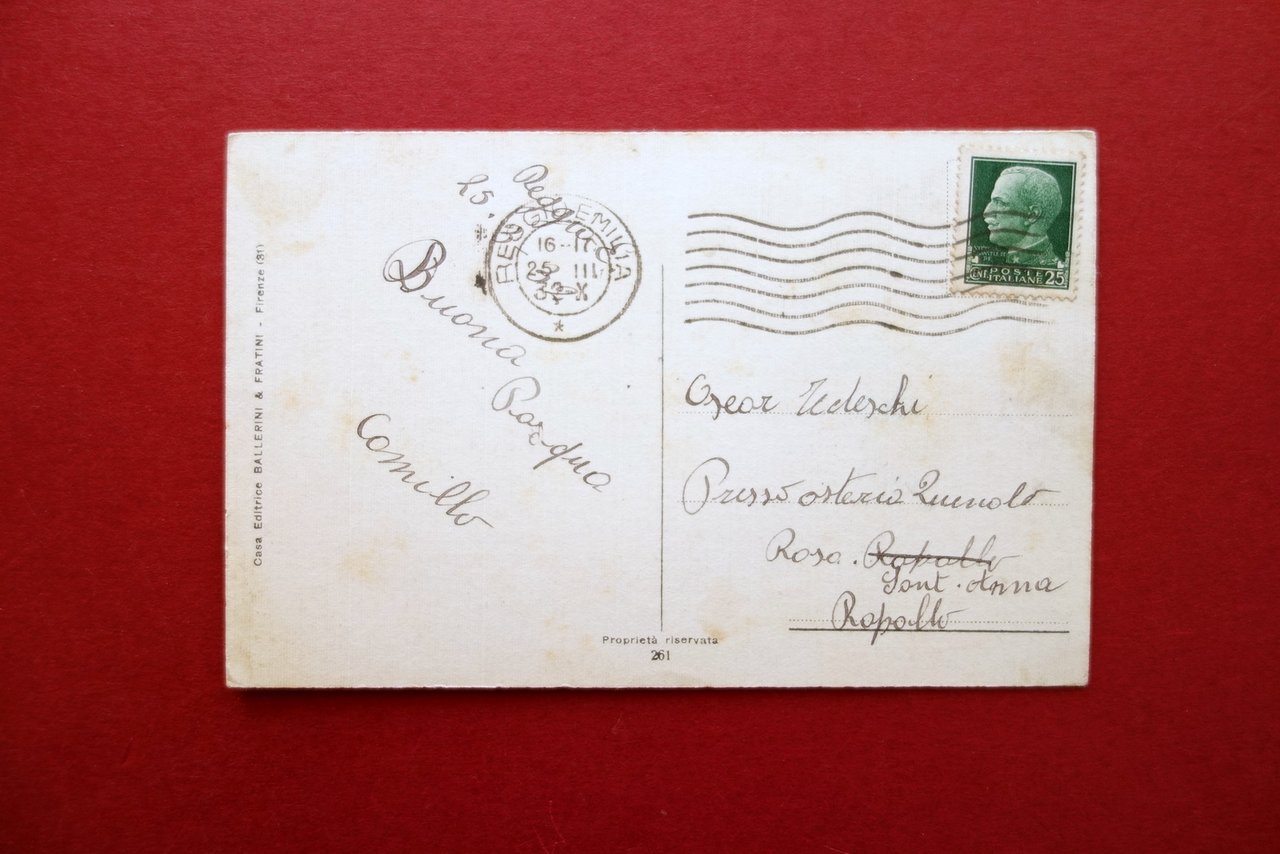 Casa Editrice BALLERINI & FRATINI - Firenze (31)
Reggio
25.
REGGIO EMILIA
16-17
25 III
X
Buona
Pasqua
Camillo
VITTORIO EMANUELE III
POSTE
CENT. ITALIANE 25
Oscar Tedeschi
Presso osteria
Rosa. Rapallo
Sant. Anna
Rapallo
Proprietà riservata
261